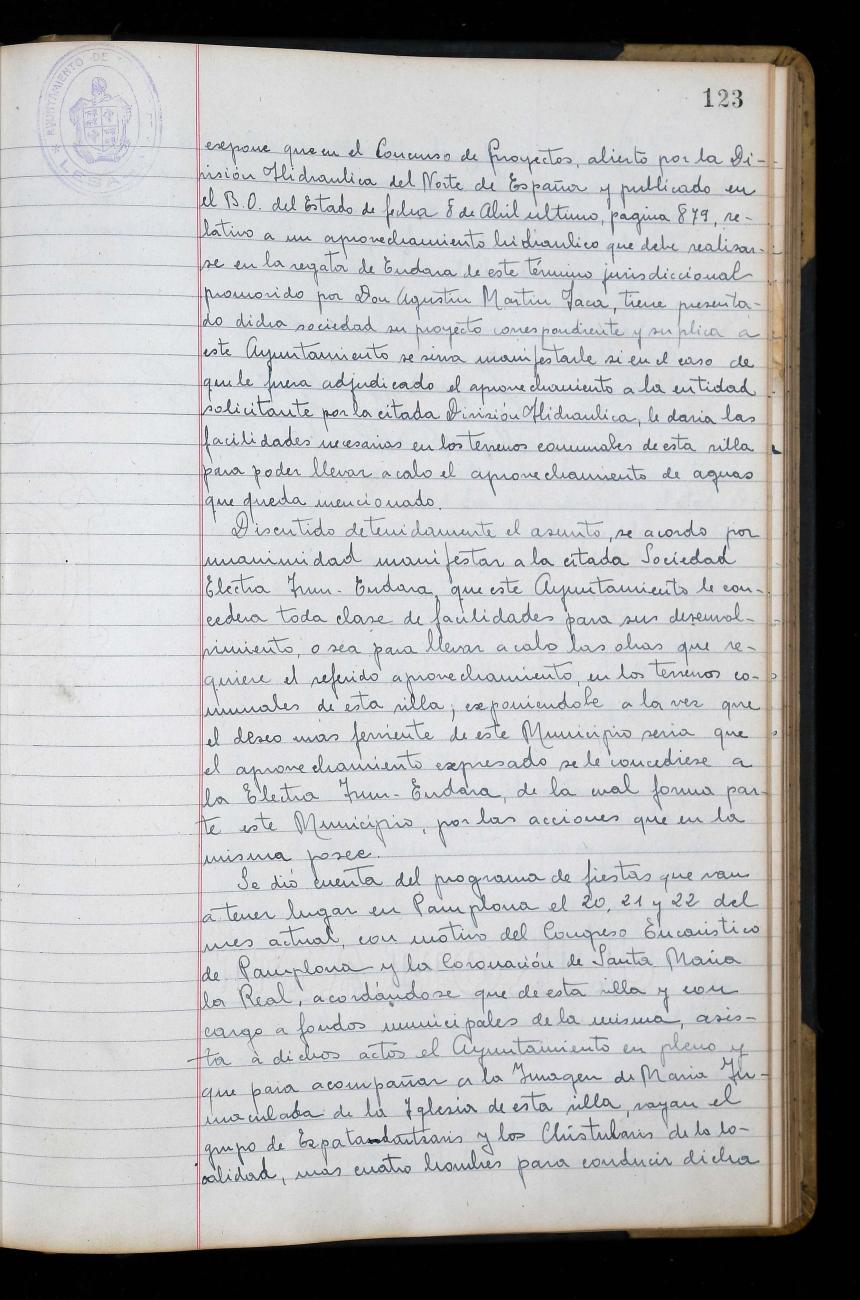 123
AYUNTAMIENTO DE
LESA
expone que en el Concurso de Proyectos, abierto por la Di-
visión Hidraulica del Norte de España y publicado en
el B.O. del Estado de fecha 8 de Abril ultimo, pagina 879, re-
lativo a un aprovechamiento hidraulico que debe realizar-
se en la regata de Endara de este término jurisdiccional
promovido por Don Agustin Martin Jaca, tiene presenta-
do dicha sociedad su proyecto correspondiente y suplica a
este Ayuntamiento se sirva manifestarle si en el caso de
que le fuera adjudicado el aprovechamiento a la entidad
solicitante por la citada División Hidraulica, le daria las
facilidades necesarias en los terrenos comunales de esta villa
para poder llevar a cabo el aprovechamiento de aguas
que queda mencionado.
Discutido detenidamente el asunto, se acordo por
unanimidad manifestar a la citada Sociedad
Electra Irun-Endara, que este Ayuntamiento le con-
cedera toda clase de facilidades para sus desenvol-
vimiento, o sea para llevar a cabo las obras que re-
quiere el referido aprovechamiento, en los terrenos co-
munales de esta villa; exponiendole a la vez que
el deseo mas ferviente de este Municipio seria que
el aprovechamiento expresado se le concediese a
la Electra Irun-Endara, de la cual forma par-
te este Municipio, por las acciones que en la
misma posee.
Se dió cuenta del programa de fiestas que van
a tener lugar en Pamplona el 20, 21 y 22 del
mes actual, con motivo del Congreso Eucaristico
de Pamplona y la Coronación de Santa Maria
la Real, acordándose que de esta villa y con
cargo a fondos municipales de la misma, asis-
ta a dichos actos el Ayuntamiento en pleno y
que para acompañar a la Imagen de Maria In-
maculada de la Iglesia de esta villa, vayan el
grupo de Ezpatadantzaris y los Chistularis de la lo-
calidad, mas cuatro hombres para conducir dicha